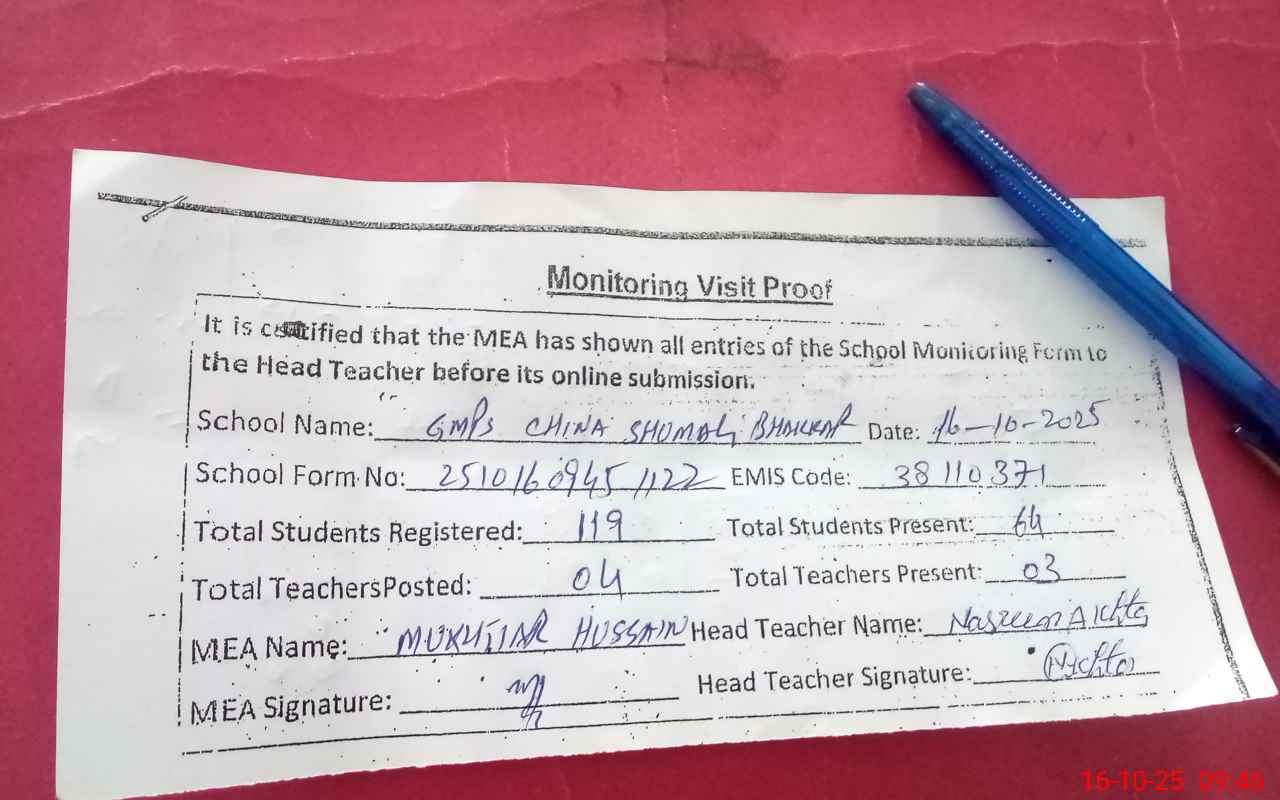 Monitoring Visit Proof
It is certified that the MEA has shown all entries of the School Monitoring Form to
the Head Teacher before its online submission.
School Name: GMPS CHINA SHUMALI BHAKKAR Date: 16-10-2025
School Form No: 25101609451122 EMIS Code: 38110371
Total Students Registered: 119 Total Students Present: 64
Total TeachersPosted: 04 Total Teachers Present: 03
MEA Name: MUKHTIAR HUSSAIN Head Teacher Name: Nasreen Akhtar
MEA Signature: Head Teacher Signature:
16-10-25 09:46